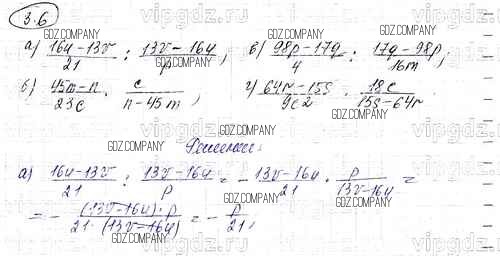 3.6
а) (16u-13v)/21 : (13v-16u)/p ; в) (98p-17q)/4 : (17q-98p)/16m ;
б) (45m-n)/23c · c/(n-45m) ; г) (64r-15s)/9c2 · 18c/(15s-64r)
Решение:
а) (16u-13v)/21 : (13v-16u)/p = - (13v-16u)/21 · p/(13v-16u) =
= - ((13v-16u)·p)/(21·(13v-16u)) = - p/21 ;
GDZ.COMPANY
vipgdz.ru